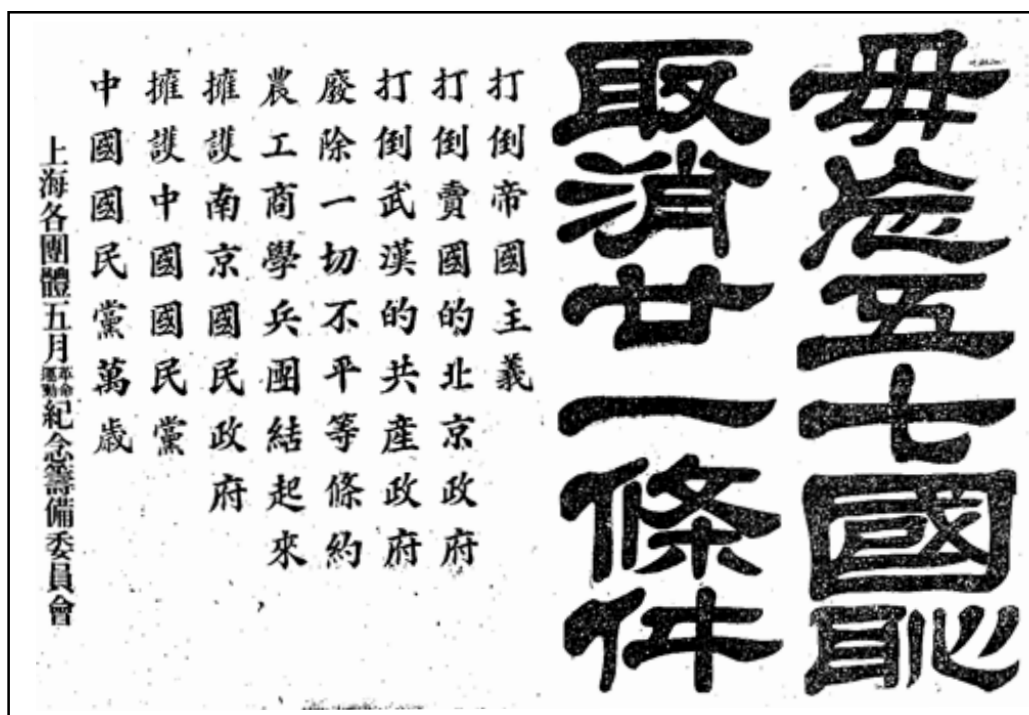 毋忘五七國恥
取消廿一條件
打倒帝國主義
打倒賣國的北京政府
打倒武漢的共產政府
廢除一切不平等條約
農工商學兵團結起來
擁護南京國民政府
擁護中國國民黨
中國國民黨萬歲
上海各團體五月革命運動紀念籌備委員會